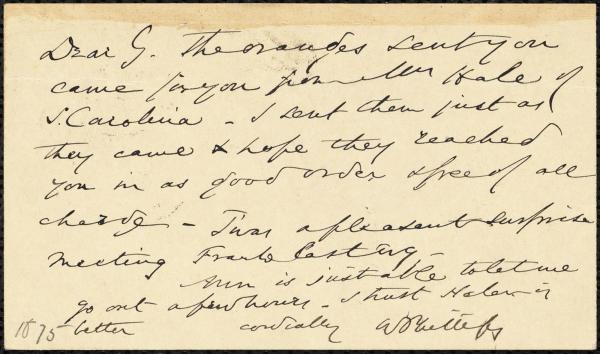 Dear G. The oranges sent you
came for you from Mrs Hale of
S. Carolina - I sent them just as
they came & hope they reached
you in as good order & free of all
charge - Twas a pleasant surprise
meeting Frank last evg -
Ann is just able to let me
go out a few hours - I trust Helen is
better cordially W Phillips
1875